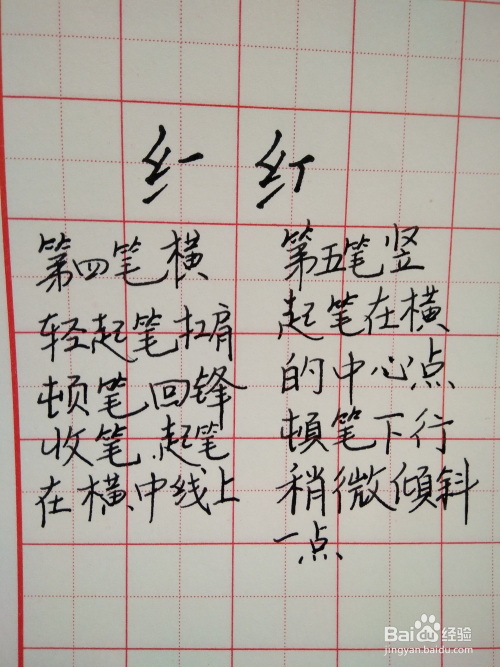 第四笔横
轻起笔扛肩
顿笔回锋
收笔.起笔
在横中线上
第五笔竖
起笔在横
的中心点
頓笔下行
稍微傾斜
一点
Baidu经验
jingyan.baidu.com